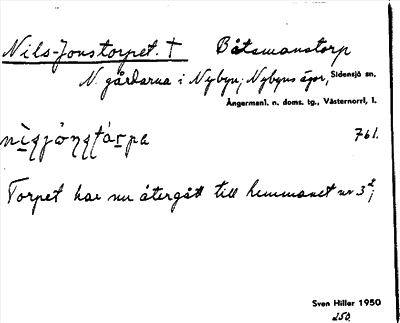 Nils-Jonstorpet. † Båtsmanstorp
N. gårdarna i Nybyn; Nybyns ägor, Sidensjö sn,
Ångermanl. n. doms. tg., Västernorrl. l.
761.
Torpet har nu återgått till hemmanet nr 3
Sven Hiller 1950
250.